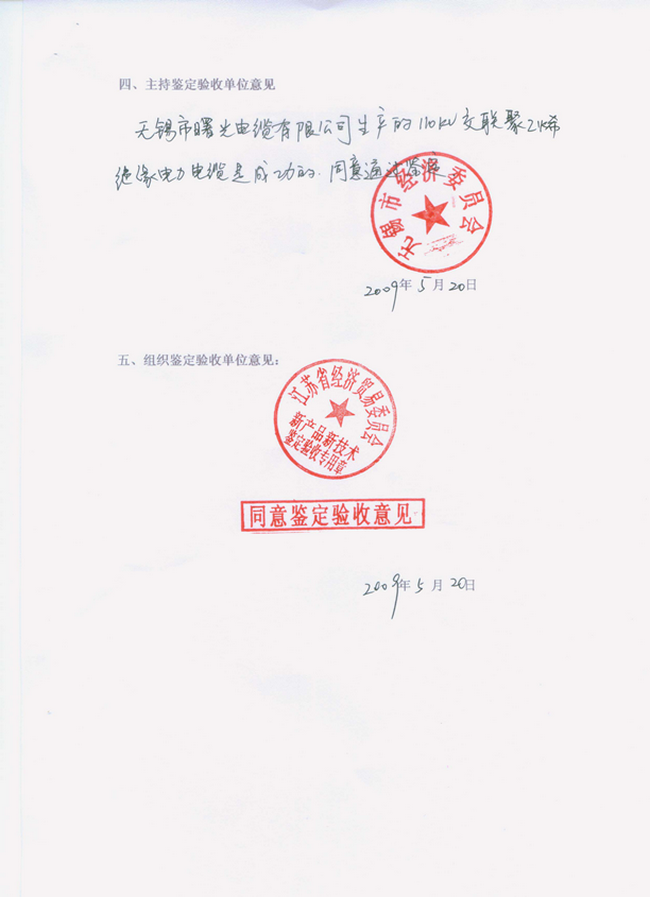 四、主持鉴定验收单位意见
无锡市曙光电缆有限公司生产的110kV交联聚乙烯
绝缘电力电缆是成功的.同意通过鉴定
无锡市经济委员会
2009年5月20日
五、组织鉴定验收单位意见:
江苏省经济贸易委员会
新产品新技术
鉴定验收专用章
同意鉴定验收意见
2009年5月20日